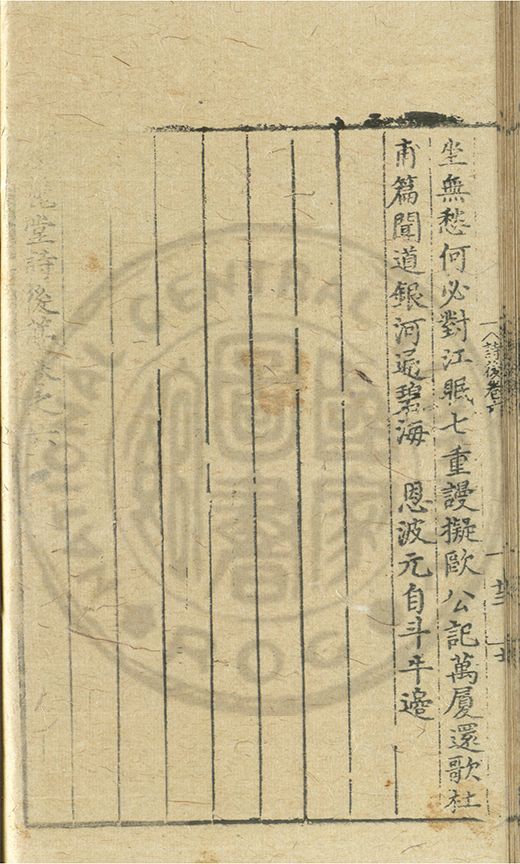 詩後卷六
坐無愁何必對江眠七重謾擬歐公記萬厦還歌杜
甫篇聞道銀河通碧海　恩波元自斗牛邊
堂詩後集卷之六